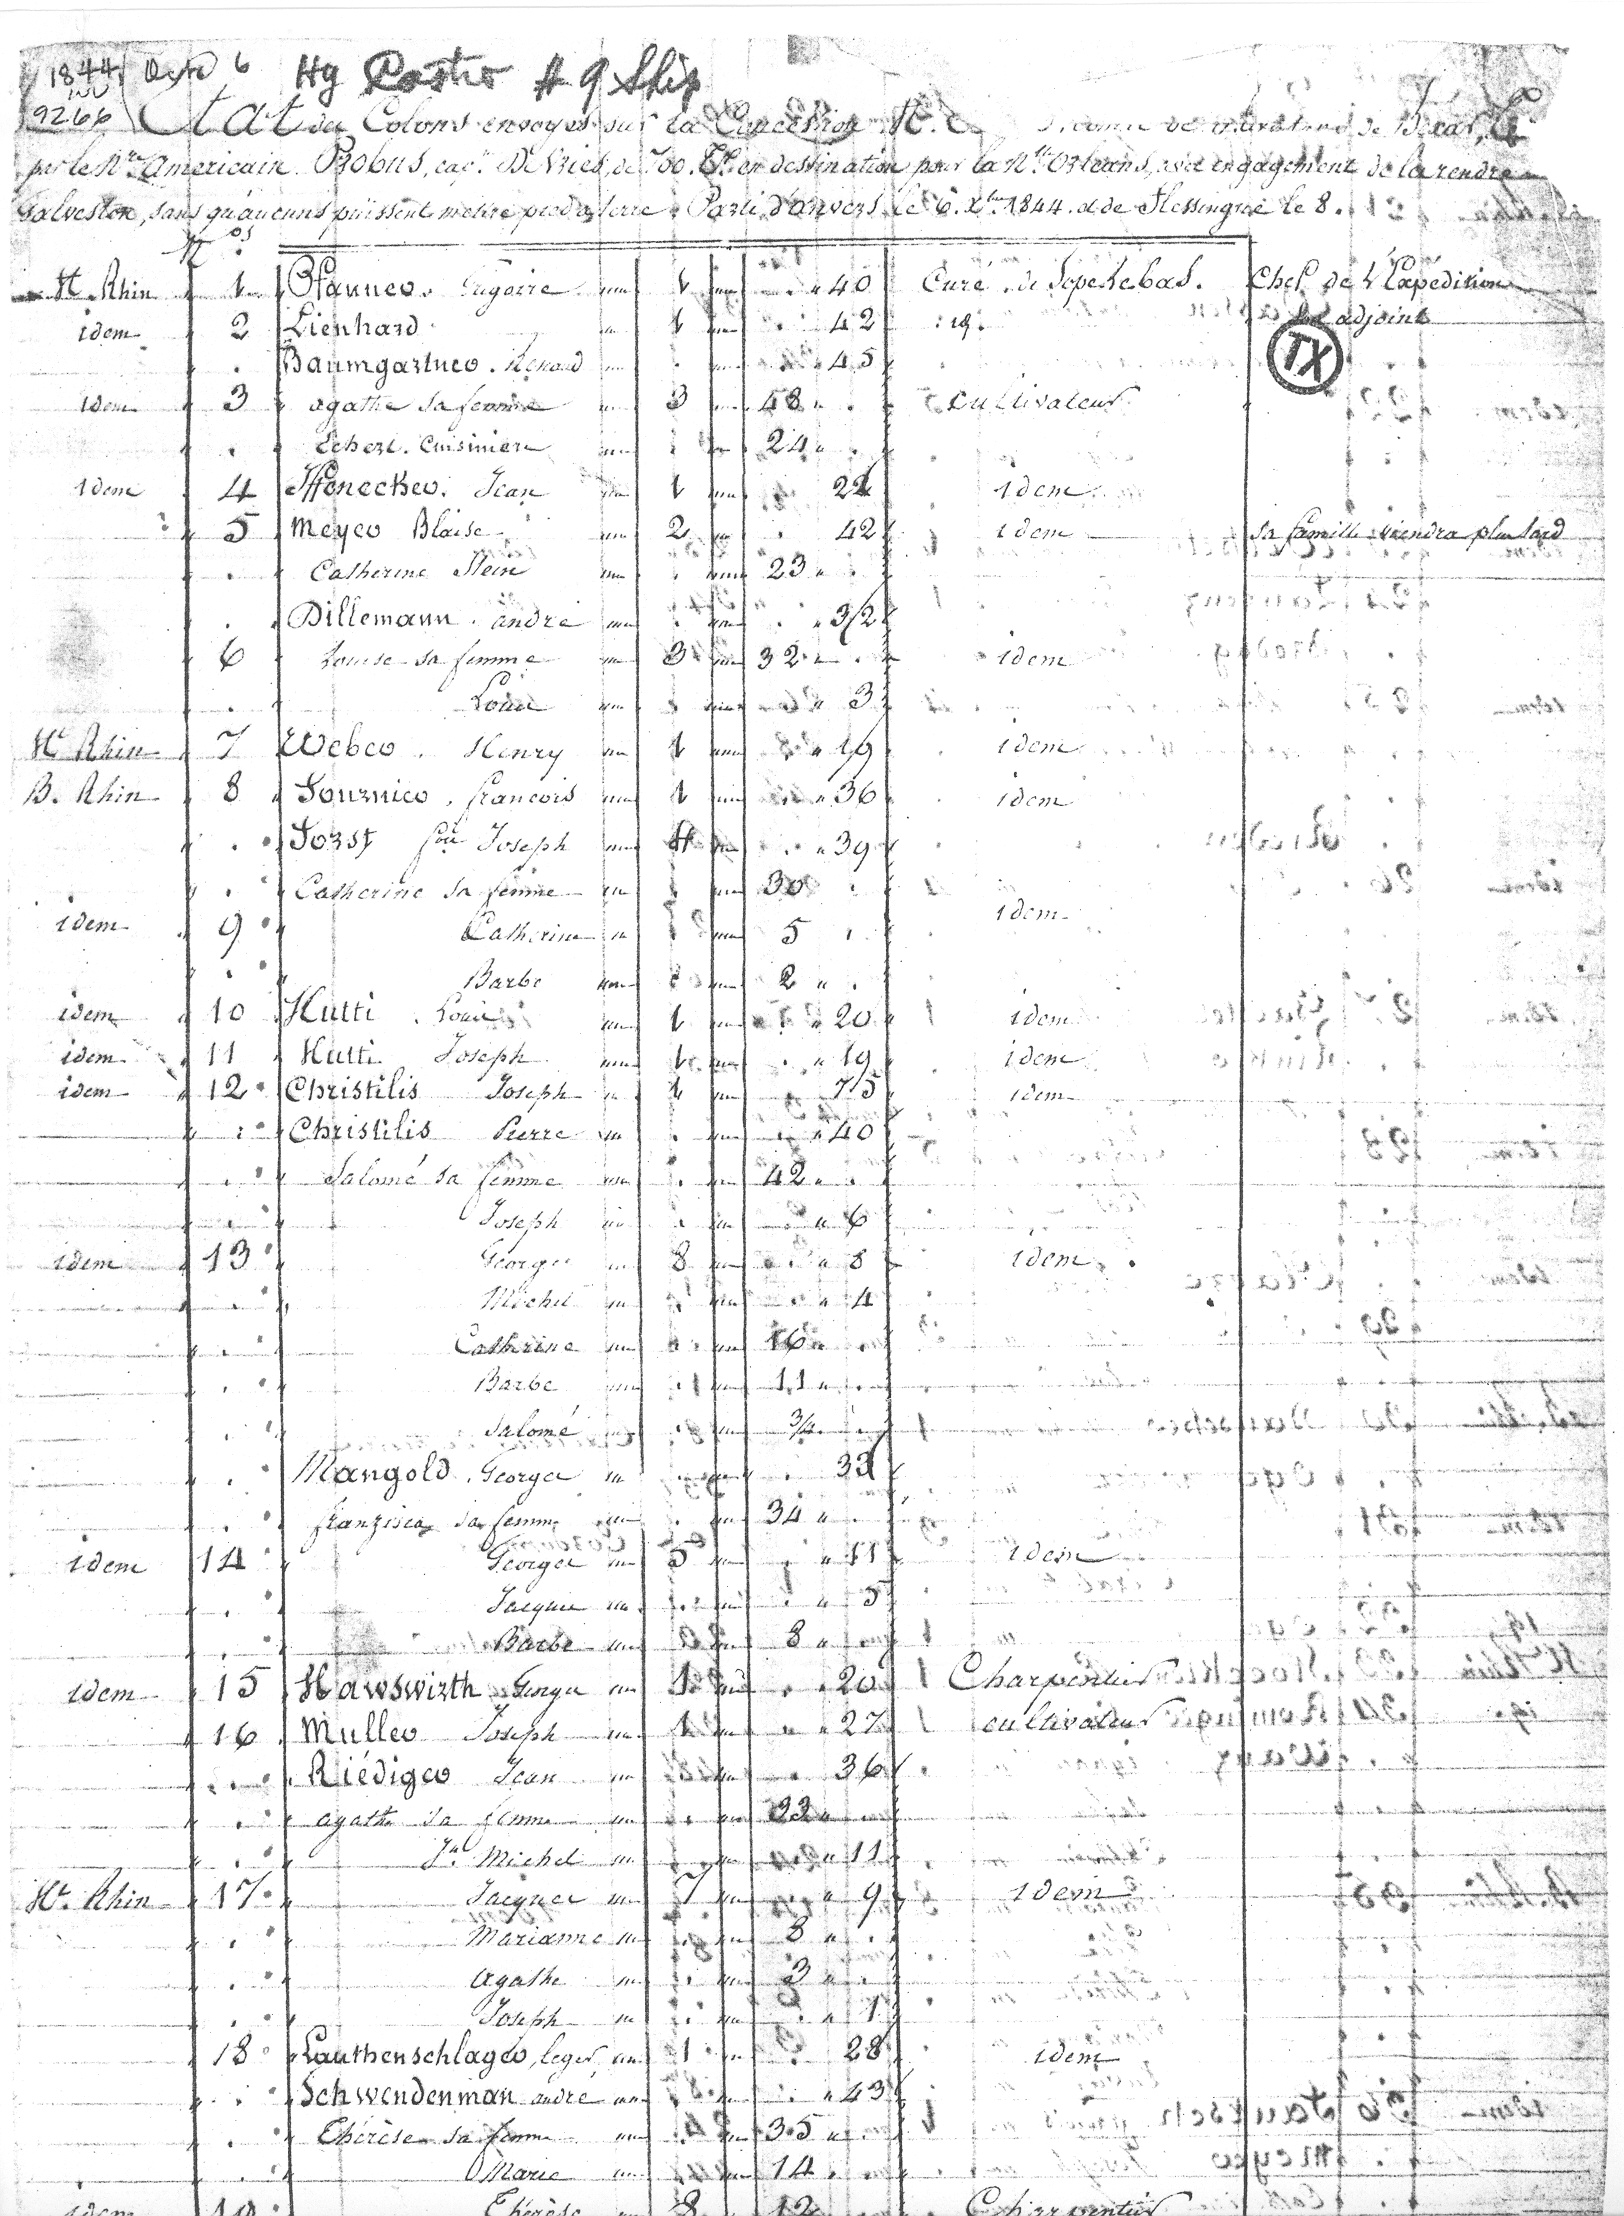 1844 Octo 6 Hy Castro # 9 Ship
9266 Etat des Colons envoyés sur la Concession H. C. de Bexar,
par le Nre Americain Probus, cap. DeVries, de 700. Tx en destination pour la Nlle Orleans, avec engagement de la rendre
Galveston, sans qu'aucuns puissent mettre pied a terre. Parti d'anvers le 6. Xbre 1844. et de Flessingue le 8.
Nos
Ht Rhin 1 Pfanner. Grégoire 1 40 Curé de Chef de l'Expédition
idem 2 Lienhard 1 42 id. adjoint
Baumgartner. 45
TX
idem 3 agathe sa femme 3 48 cultivateur
cuisiniere 24
idem 4 Jean 1 22 idem
5 Meyer Blaise 2 42 idem sa famille viendra plus tard
Catherine Stein 23
Dillemann. andré 32
6 Louise sa femme 3 32 idem
Louis 3
Ht Rhin 7 Weber. Henry 1 19 idem
B. Rhin 8 Fournier. francois 1 36 idem
Forst Joseph 4 39
Catherine sa femme 30
idem 9 Catherine 5 idem
Barbe 2
idem 10 Hutti. Louis 1 20 idem
idem 11 Hutti Joseph 1 19 idem
idem 12 Christilis Joseph 1 75 idem
Christilis Pierre 40
Salomé sa femme 42
Joseph 6
idem 13 George 8 8 idem
Michel 4
Catherine 16
Barbe 11
Salomé 3/4
Mangold. George 33
franzisca sa femme 34
idem 14 George 5 11 idem
Jacques 5
Barbe 8
idem 15 Hawswirth George 1 20 Charpentier
16 Muller Joseph 1 27 cultivateur
Riédiger Jean 36
agathe sa femme 33
Jn Michel 11
Ht. Rhin 17 Jacques 7 9 idem
Marianne 8
Agathe 3
Joseph 1
18 Lauthenschlager, leger 1 28 idem
Schwendenman andré 43
Thérèse sa femme 35
Marie 14
idem Thérèse 8 12 Charpentier